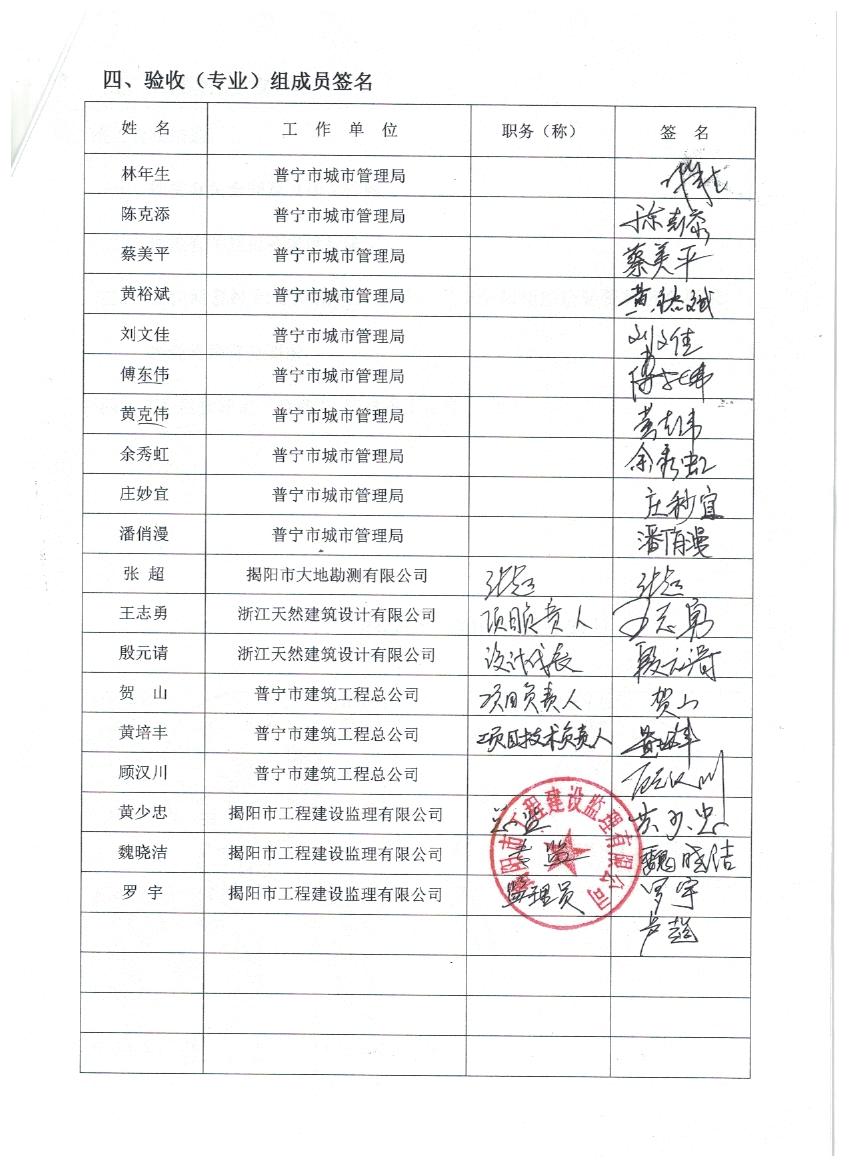 四、验收（专业）组成员签名
姓 名 工 作 单 位 职务（称） 签 名
林年生 普宁市城市管理局
陈克添 普宁市城市管理局
蔡美平 普宁市城市管理局 蔡美平
黄裕斌 普宁市城市管理局 黄裕斌
刘文佳 普宁市城市管理局 刘文佳
傅东伟 普宁市城市管理局 傅东伟
黄克伟 普宁市城市管理局 黄克伟
余秀虹 普宁市城市管理局 余秀虹
庄妙宜 普宁市城市管理局 庄秒宜
潘俏漫 普宁市城市管理局 潘俏漫
张 超 揭阳市大地勘测有限公司 张超 张超
王志勇 浙江天然建筑设计有限公司 项目负责人 王志勇
殷元请 浙江天然建筑设计有限公司 设计代表
贺 山 普宁市建筑工程总公司 项目负责人 贺山
黄培丰 普宁市建筑工程总公司 项目技术负责人 黄培丰
顾汉川 普宁市建筑工程总公司 顾汉川
黄少忠 揭阳市工程建设监理有限公司 总监 黄少忠
魏晓洁 揭阳市工程建设监理有限公司 专监 魏晓洁
罗 宇 揭阳市工程建设监理有限公司 监理员 罗宇
卢超
揭阳市工程建设监理有限公司